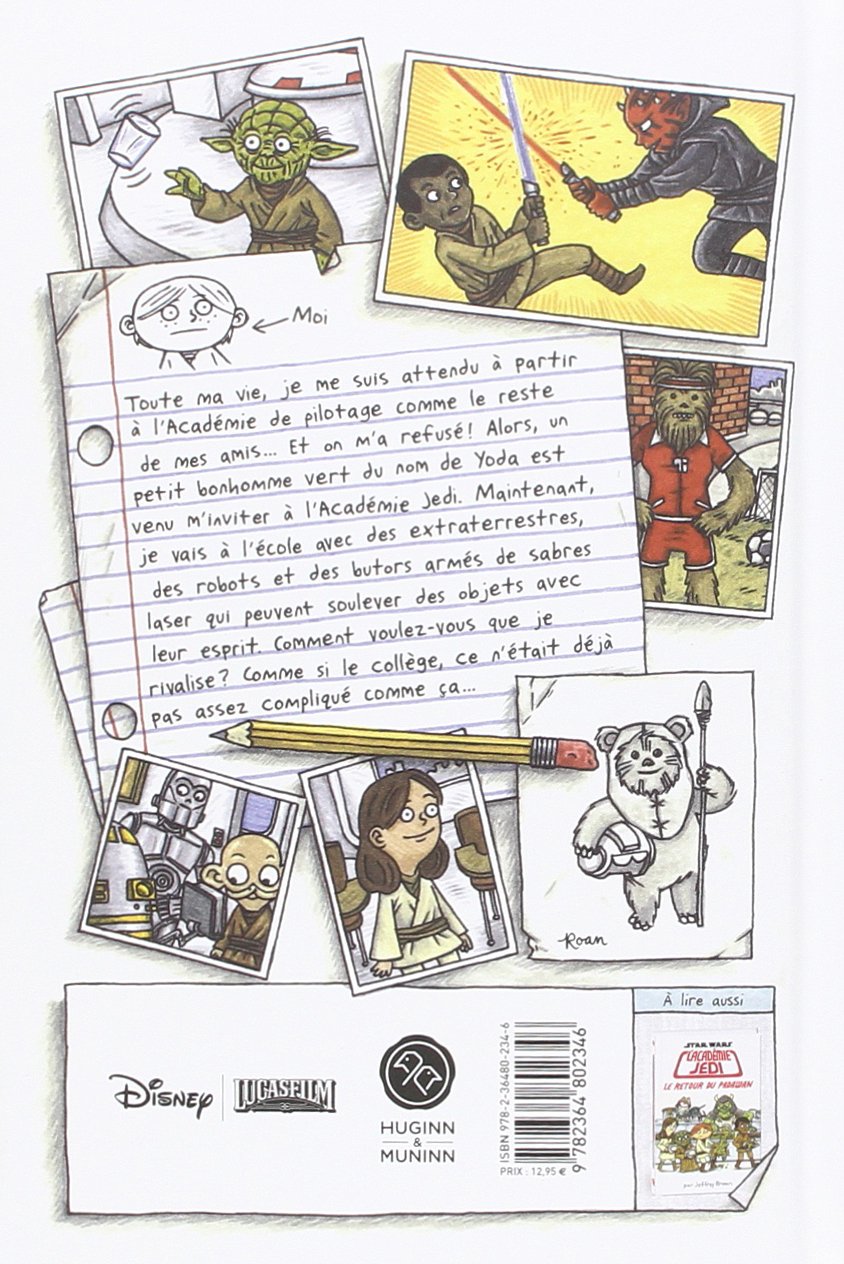 Moi
Toute ma vie, je me suis attendu à partir
à l'Académie de pilotage comme le reste
de mes amis... Et on m'a refusé! Alors, un
petit bonhomme vert du nom de Yoda est
venu m'inviter à l'Académie Jedi. Maintenant,
je vais à l'école avec des extraterrestres,
des robots et des butors armés de sabres
laser qui peuvent soulever des objets avec
leur esprit. Comment voulez-vous que je
rivalise? Comme si le collège, ce n'était déjà
pas assez compliqué comme ça...
Roan
Disney
LUCASFILM
HUGINN
&
MUNINN
ISBN 978-2-36480-234-6
9 782364 802346
PRIX : 12,95 €
À lire aussi
STAR WARS
L'ACADÉMIE
JEDI
LE RETOUR DU PADAWAN
par Jeffrey Brown